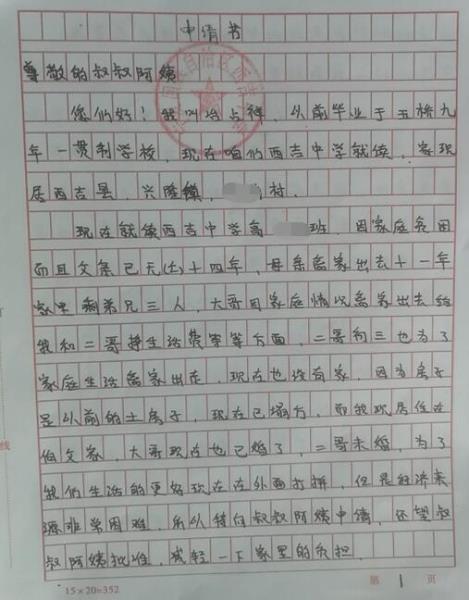 申请书
尊敬的叔叔阿姨
您们好！我叫马占祥，从前毕业于五桥九
年一贯制学校，现在咱们西吉中学就读，家现
居西吉县，兴隆镇，村.
现在就读西吉中学高班，因家庭贫困
而且父亲已无(亡)十四年，母亲离家出去十一年
家里剩弟兄三人，大哥因家庭情况离家出去给
我和二哥挣生活费学等等方面，二哥初三也为了
家庭生活离家出走，现在也没有家，因为房子
是以前的土房子，现在已塌方，而我现居住在
伯父家，大哥现在也已婚了，二哥未婚，为了
我们生活的更好现在在外面打拼，但是经济来
源非常困难，所以特向叔叔阿姨申请，还望叔
叔阿姨批准，减轻一下家里的负担.
线
15×20=352
第 1 页